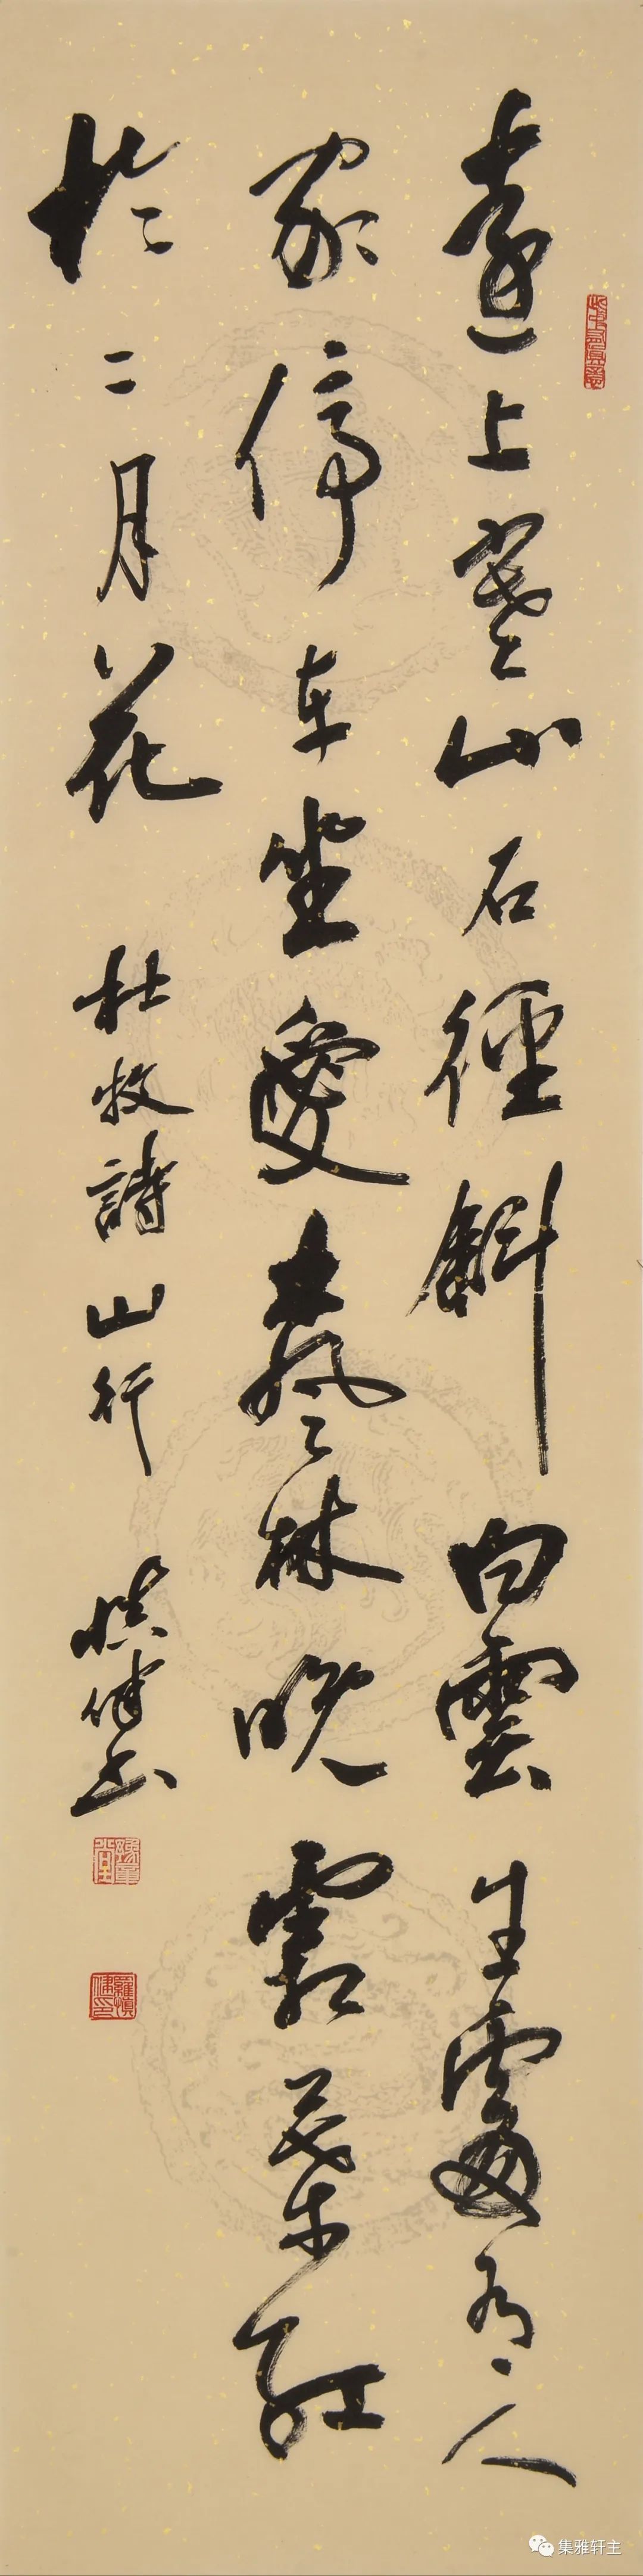 遠上寒山石徑斜白雲生處有人
家停車坐愛楓林晚霜葉紅
於二月花
杜牧詩山行
慎健書
集雅轩主